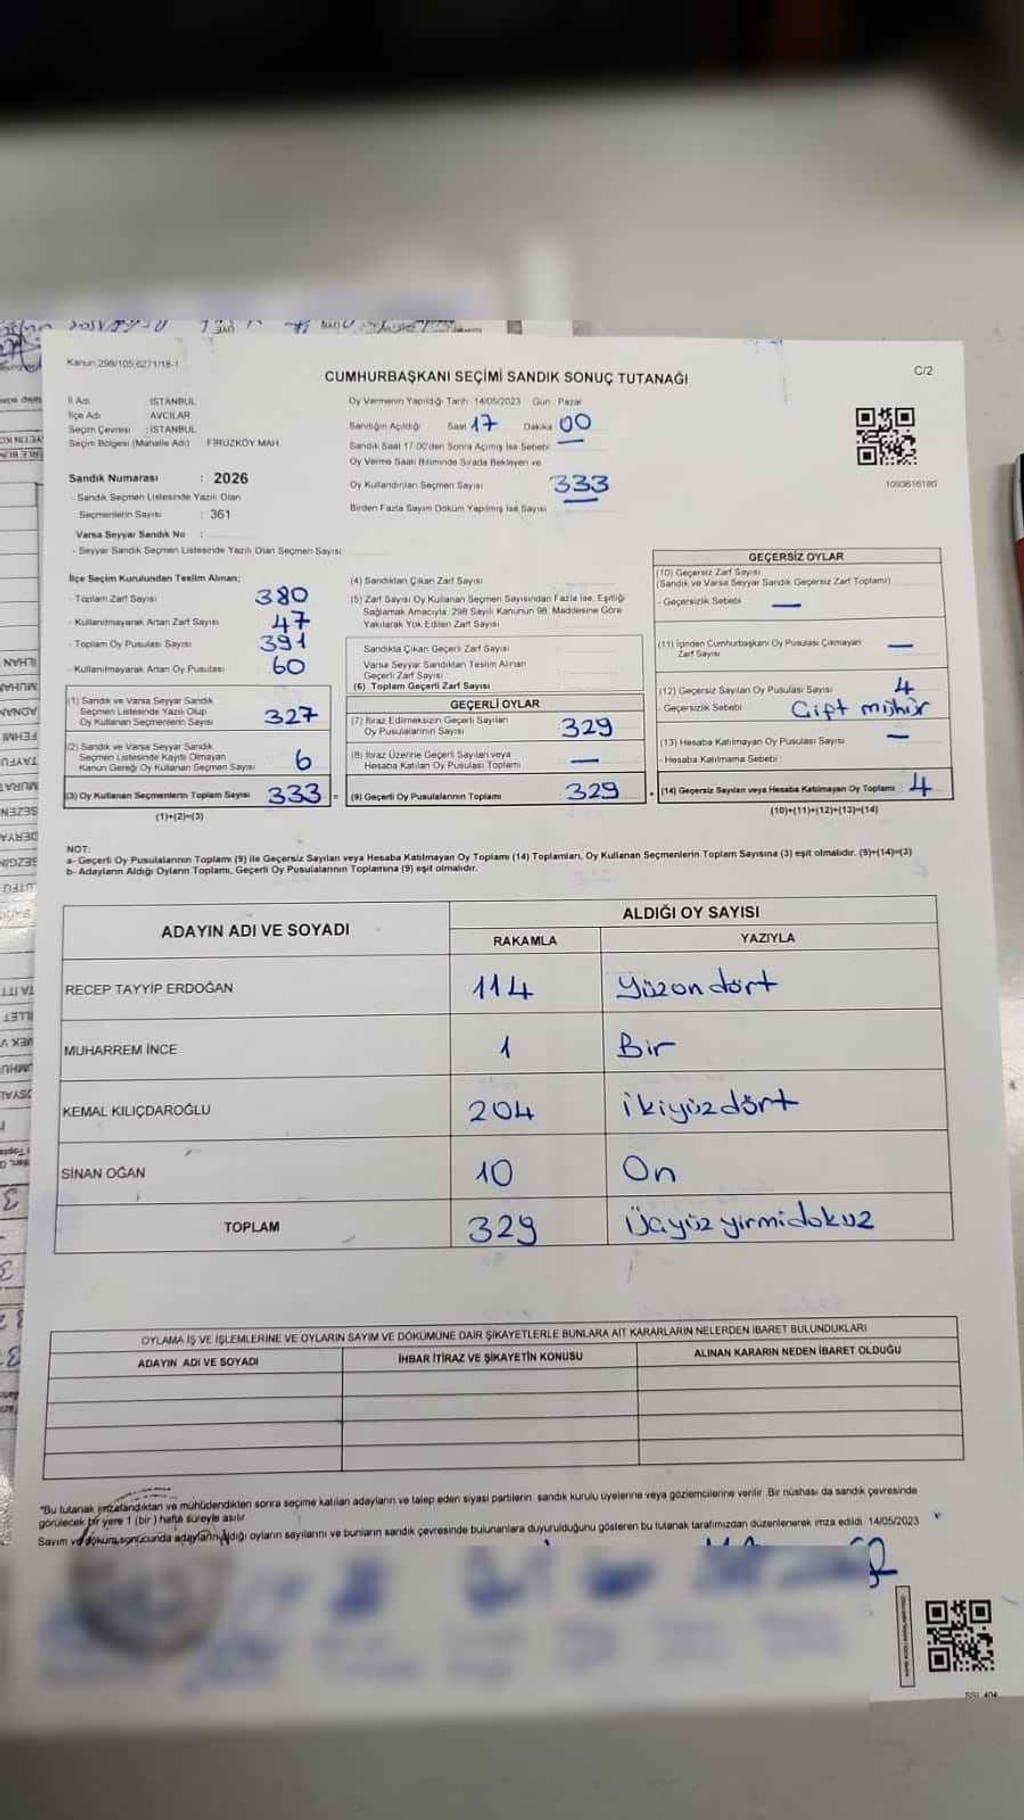 Kanun 298/105,6271/18-1
CUMHURBAŞKANI SEÇİMİ SANDIK SONUÇ TUTANAĞI
C/2
İl Adı İSTANBUL
İlçe Adı AVCILAR
Seçim Çevresi : İSTANBUL
Seçim Bölgesi (Mahalle Adı) FİRUZKÖY MAH
Oy Vermenin Yapıldığı Tarih: 14/05/2023 Gün : Pazar
Sandığın Açıldığı Saat 17 Dakika 00
Sandık Saat 17:00'den Sonra Açılmış İse Sebebi
Oy Verme Saati Bitiminde Sırada Bekleyen ve
Oy Kullandırılan Seçmen Sayısı 333
Birden Fazla Sayım Döküm Yapılmış İse Sayısı
1093616180
Sandık Numarası : 2026
- Sandık Seçmen Listesinde Yazılı Olan
Seçmenlerin Sayısı : 361
Varsa Seyyar Sandık No :
- Seyyar Sandık Seçmen Listesinde Yazılı Olan Seçmen Sayısı
İlçe Seçim Kurulundan Teslim Alınan;
- Toplam Zarf Sayısı 380
- Kullanılmayarak Artan Zarf Sayısı 47
- Toplam Oy Pusulası Sayısı 391
- Kullanılmayarak Artan Oy Pusulası 60
(1) Sandık ve Varsa Seyyar Sandık
Seçmen Listesinde Yazılı Olup
Oy Kullanan Seçmenlerin Sayısı 327
(2) Sandık ve Varsa Seyyar Sandık
Seçmen Listesinde Kayıtlı Olmayan
Kanun Gereği Oy Kullanan Seçmen Sayısı 6
(3) Oy Kullanan Seçmenlerin Toplam Sayısı 333 =
(1)+(2)=(3)
(4) Sandıktan Çıkan Zarf Sayısı
(5) Zarf Sayısı Oy Kullanan Seçmen Sayısından Fazla İse, Eşitliği
Sağlamak Amacıyla, 298 Sayılı Kanunun 98. Maddesine Göre
Yakılarak Yok Edilen Zarf Sayısı
Sandıkta Çıkan Geçerli Zarf Sayısı
Varsa Seyyar Sandıktan Teslim Alınan
Geçerli Zarf Sayısı
(6) Toplam Geçerli Zarf Sayısı
GEÇERLİ OYLAR
(7) İtiraz Edilmeksizin Geçerli Sayılan
Oy Pusulalarının Sayısı 329
(8) İtiraz Üzerine Geçerli Sayılan veya
Hesaba Katılan Oy Pusulası Toplamı —
(9) Geçerli Oy Pusulalarının Toplamı 329
GEÇERSİZ OYLAR
(10) Geçersiz Zarf Sayısı
(Sandık ve Varsa Seyyar Sandık Geçersiz Zarf Toplamı)
- Geçersizlik Sebebi —
(11) İçinden Cumhurbaşkanı Oy Pusulası Çıkmayan
Zarf Sayısı —
(12) Geçersiz Sayılan Oy Pusulası Sayısı 4
- Geçersizlik Sebebi Çift mühür
(13) Hesaba Katılmayan Oy Pusulası Sayısı —
- Hesaba Katılmama Sebebi :
(14) Geçersiz Sayılan veya Hesaba Katılmayan Oy Toplamı 4
(10)+(11)+(12)+(13)=(14)
NOT:
a- Geçerli Oy Pusulalarının Toplamı (9) ile Geçersiz Sayılan veya Hesaba Katılmayan Oy Toplamı (14) Toplamları, Oy Kullanan Seçmenlerin Toplam Sayısına (3) eşit olmalıdır. (9)+(14)=(3)
b- Adayların Aldığı Oyların Toplamı, Geçerli Oy Pusulalarının Toplamına (9) eşit olmalıdır.
ADAYIN ADI VE SOYADI
ALDIĞI OY SAYISI
RAKAMLA YAZIYLA
RECEP TAYYİP ERDOĞAN 114 Yüzon dört
MUHARREM İNCE 1 Bir
KEMAL KILIÇDAROĞLU 204 ikiyüzdört
SİNAN OĞAN 10 On
TOPLAM 329 Üçyüz yirmidokuz
OYLAMA İŞ VE İŞLEMLERİNE VE OYLARIN SAYIM VE DÖKÜMÜNE DAİR ŞİKAYETLERLE BUNLARA AİT KARARLARIN NELERDEN İBARET BULUNDUKLARI
ADAYIN ADI VE SOYADI İHBAR İTİRAZ VE ŞİKAYETİN KONUSU ALINAN KARARIN NEDEN İBARET OLDUĞU
*Bu tutanak imzalandıktan ve mühürlendikten sonra seçime katılan adayların ve talep eden siyasi partilerin sandık kurulu üyelerine veya gözlemcilerine verilir. Bir nüshası da sandık çevresinde
görülecek bir yere 1 (bir) hafta süreyle asılır.
Sayım ve döküm sonucunda adayların aldığı oyların sayılarını ve bunların sandık çevresinde bulunanlara duyurulduğunu gösteren bu tutanak tarafımızdan düzenlenerek imza edildi. 14/05/2023